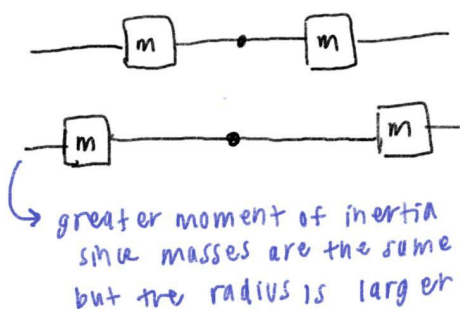 m m
m m
greater moment of inertia
since masses are the same
but the radius is larger